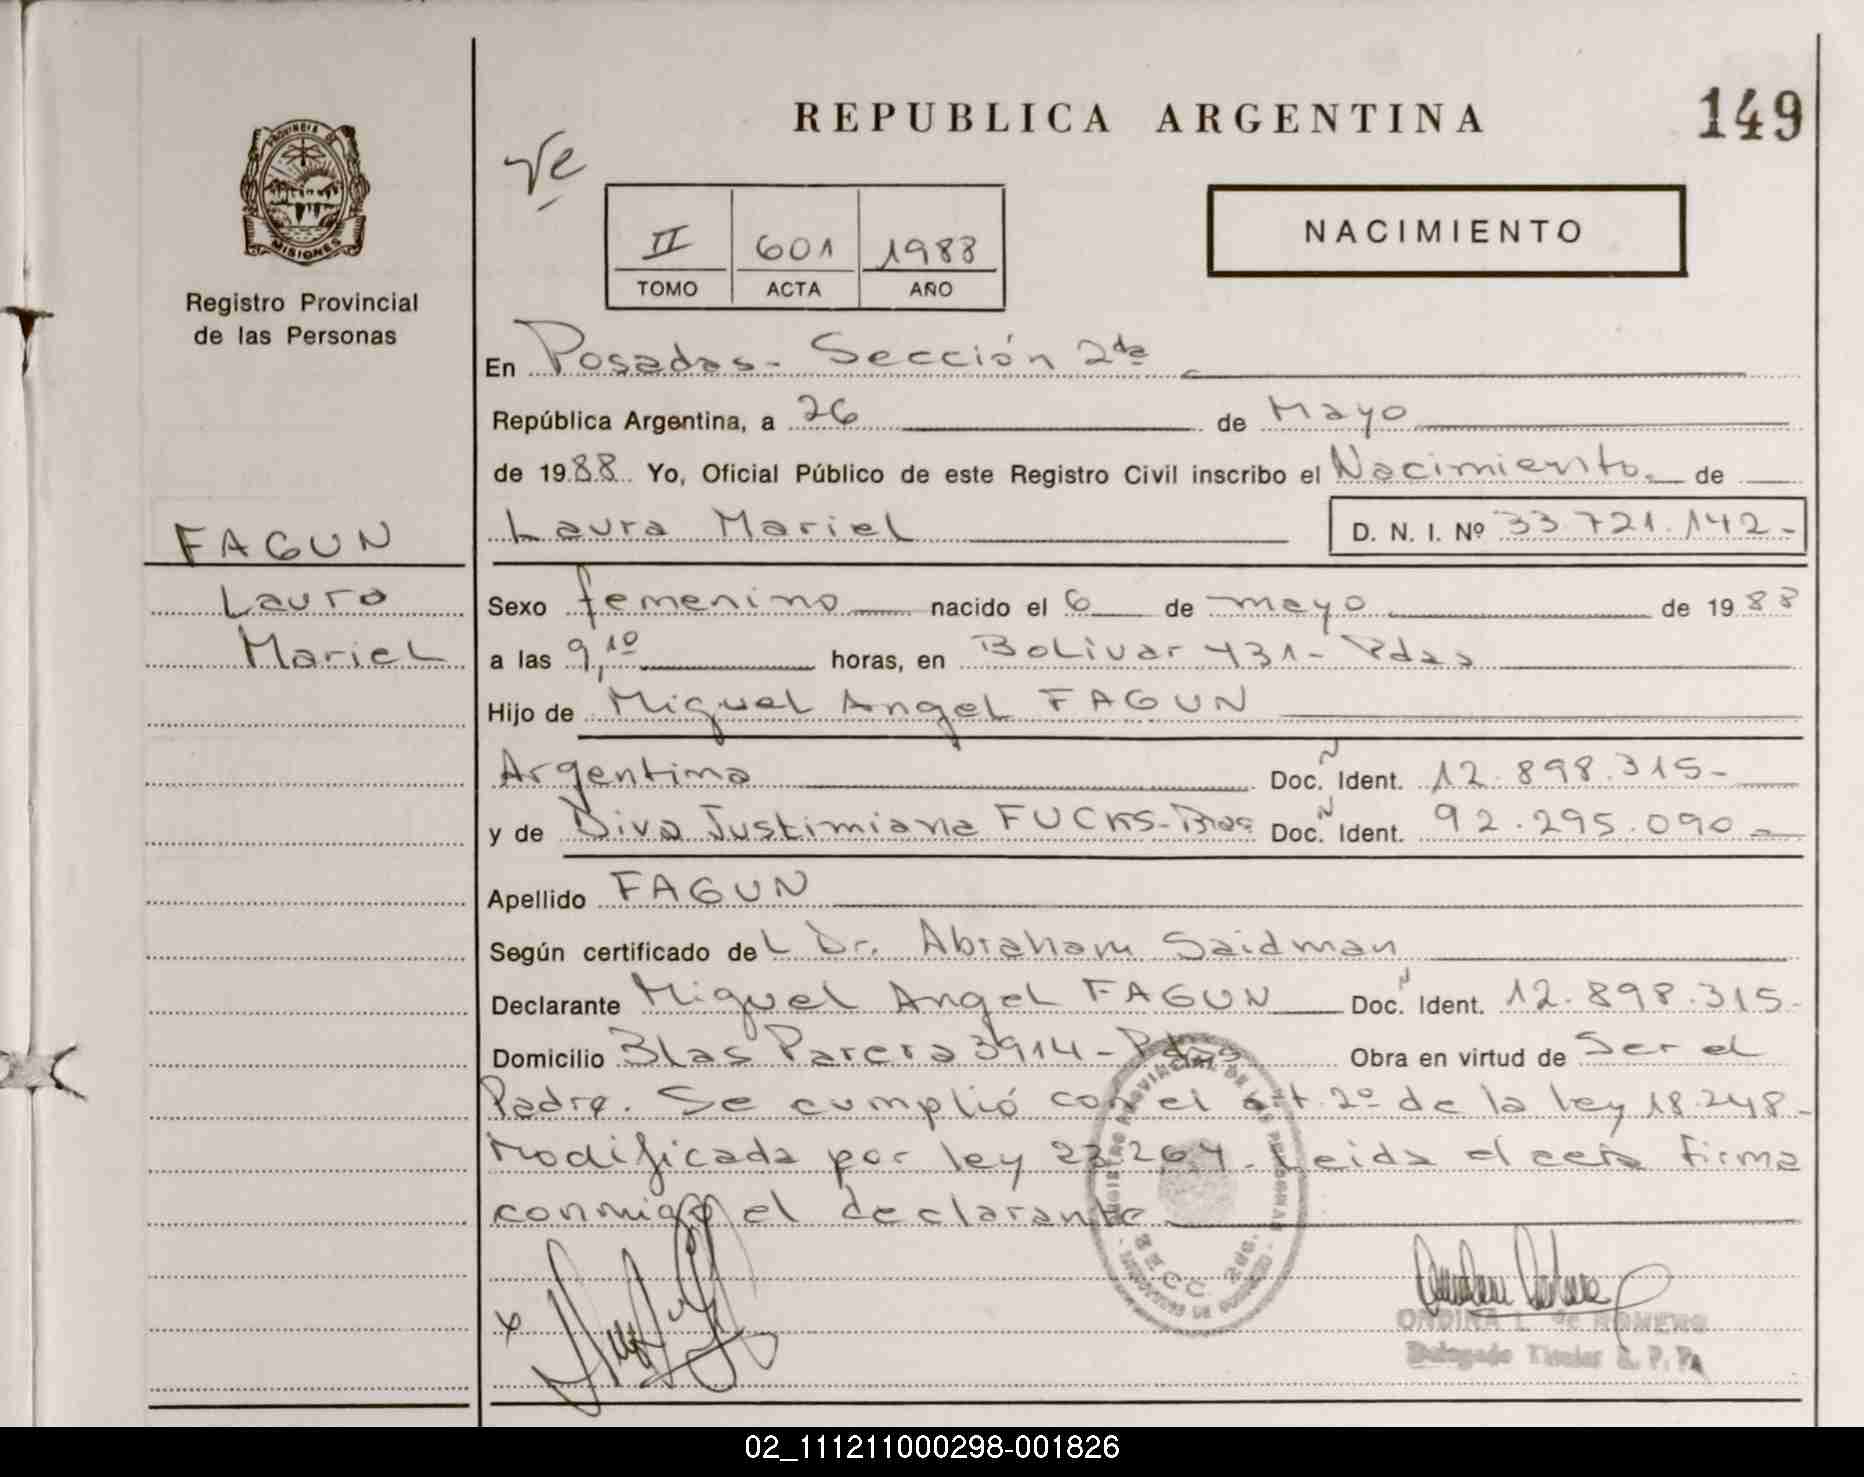 REPUBLICA ARGENTINA
149
PROVINCIA DE
MISIONES
Registro Provincial
de las Personas
II 601 1988
TOMO ACTA AÑO
NACIMIENTO
En Posadas - Sección 2da
República Argentina, a 26 de Mayo
de 1988 Yo, Oficial Público de este Registro Civil inscribo el Nacimiento de
Laura Mariel D. N. I. Nº 33.721.142-
FAGUN
Laura
Mariel
Sexo femenino nacido el 6 de mayo de 1988
a las 9,10 horas, en Bolivar 431 - Pdas
Hijo de Miguel Angel FAGUN
Argentina Doc. Ident. 12.898.315-
y de Diva Justimiana FUCKS-Bras Doc. Ident. 92.295.090-
Apellido FAGUN
Según certificado del Dr. Abraham Saidman
Declarante Miguel Angel FAGUN Doc. Ident. 12.898.315-
Domicilio Blas Parera 3914 - Pdas Obra en virtud de Ser el
Padre. Se cumplió con el art. 2º de la ley 18.248-
Modificada por ley 23.264. Leida el acta firma
conmigo el declarante
REGISTRO PROVINCIAL DE LAS PERSONAS
SECC. 2da.
ONDINA L. de ROMERO
Delegado Titular R. P. P.
02_111211000298-001826